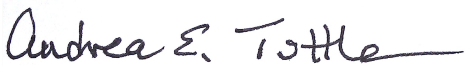 Andrea E. Tuttle